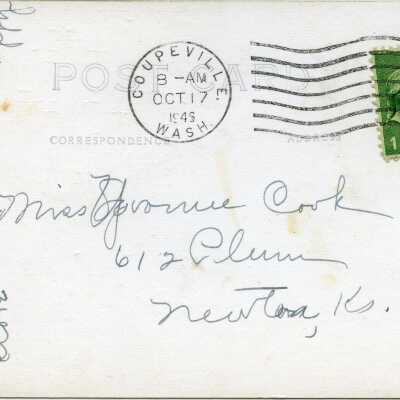 POST CARD
COUPEVILLE
8-AM
OCT 17
WASH.
CORRESPONDENCE
ADDRESS
1
Miss Yvonne Cook
612 Plum
Newton, Ks.